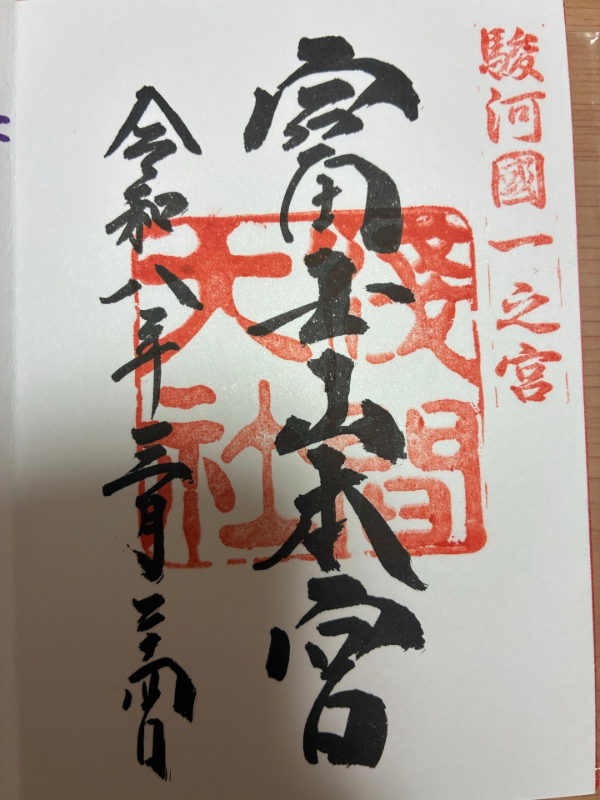 駿河國一之宮
富士山本宮
淺間大社
令和八年三月二十四日